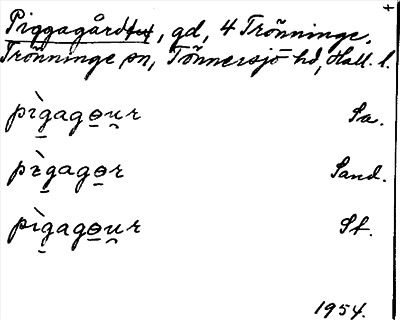 Piggagård, gd, 4 Trönninge,
Trönninge sn, Tönnersjö hd, Hall. l.
pìgagɵu̯r Sa.
pɪ̀gagɵr Sand.
pìgagɵu̯r St.
1954.